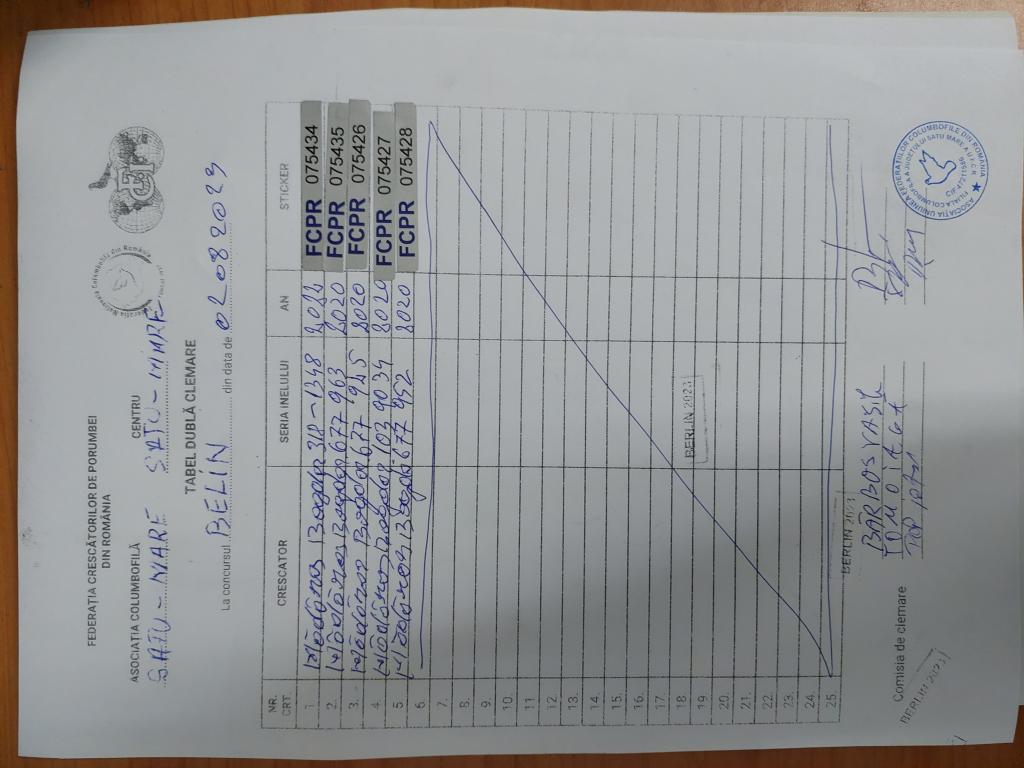 FEDERAȚIA CRESCĂTORILOR DE PORUMBEI
DIN ROMÂNIA
ASOCIAȚIA COLUMBOFILĂ CENTRU
SATU-MARE SATU-MARE
TABEL DUBLĂ CLEMARE
La concursul BELIN din data de 02082023
NR. CRT. CRESCATOR SERIA INELULUI AN STICKER
1. Bogdan 318-1348 2022 FCPR 075434
2. Bogdan 677 963 2020 FCPR 075435
3. Bogdan 677 945 2020 FCPR 075426
4. Bogdan 103 9034 2020 FCPR 075427
5 Bogdan 677 952 2020 FCPR 075428
6.
7.
8.
9.
10.
11.
12.
13.
14.
15.
16.
17.
18. BERLIN 2023
19.
20.
21.
22.
23.
24.
25.
BERLIN 2023
Comisia de clemare
BARBOS VASILE
POP
BERLIN 2023
ASOCIAȚIA UNIUNEA FEDERAȚIILOR COLUMBOFILE DIN ROMÂNIA
FILIALA COLUMBOFILĂ A JUDEȚULUI SATU MARE A U.F.C.R.